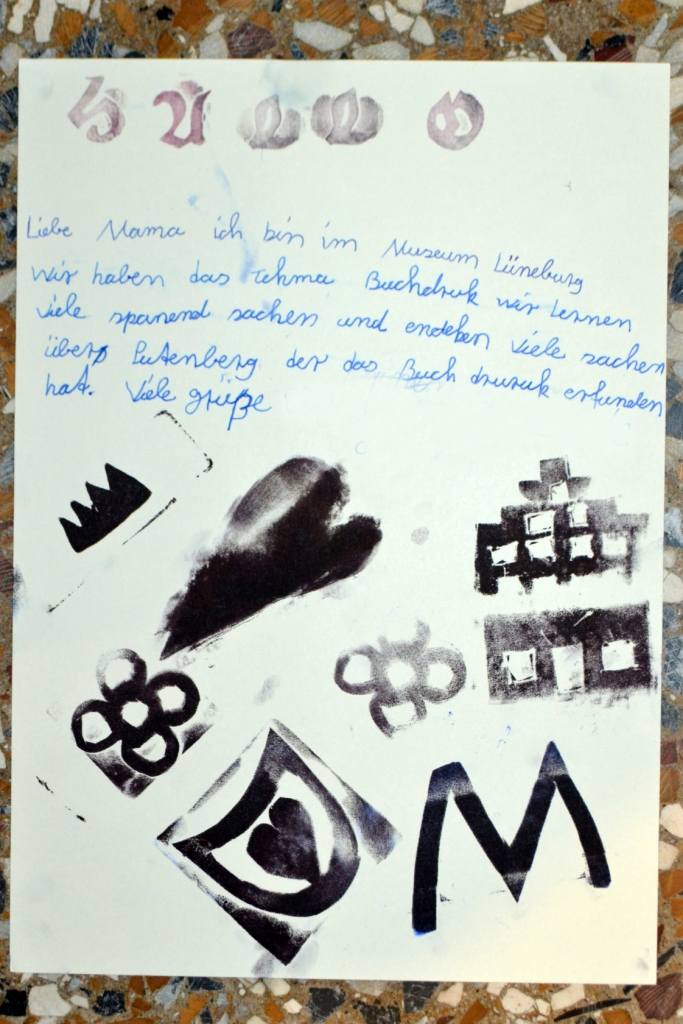 HALLO
Liebe Mama ich bin im Museum Lüneburg
wir haben das Tehma Buchdruk wir lernen
viele spanend sachen und endeken viele sachen
über Gutenberg der das Buch druruk erfunden
hat. Viele grüße
D M